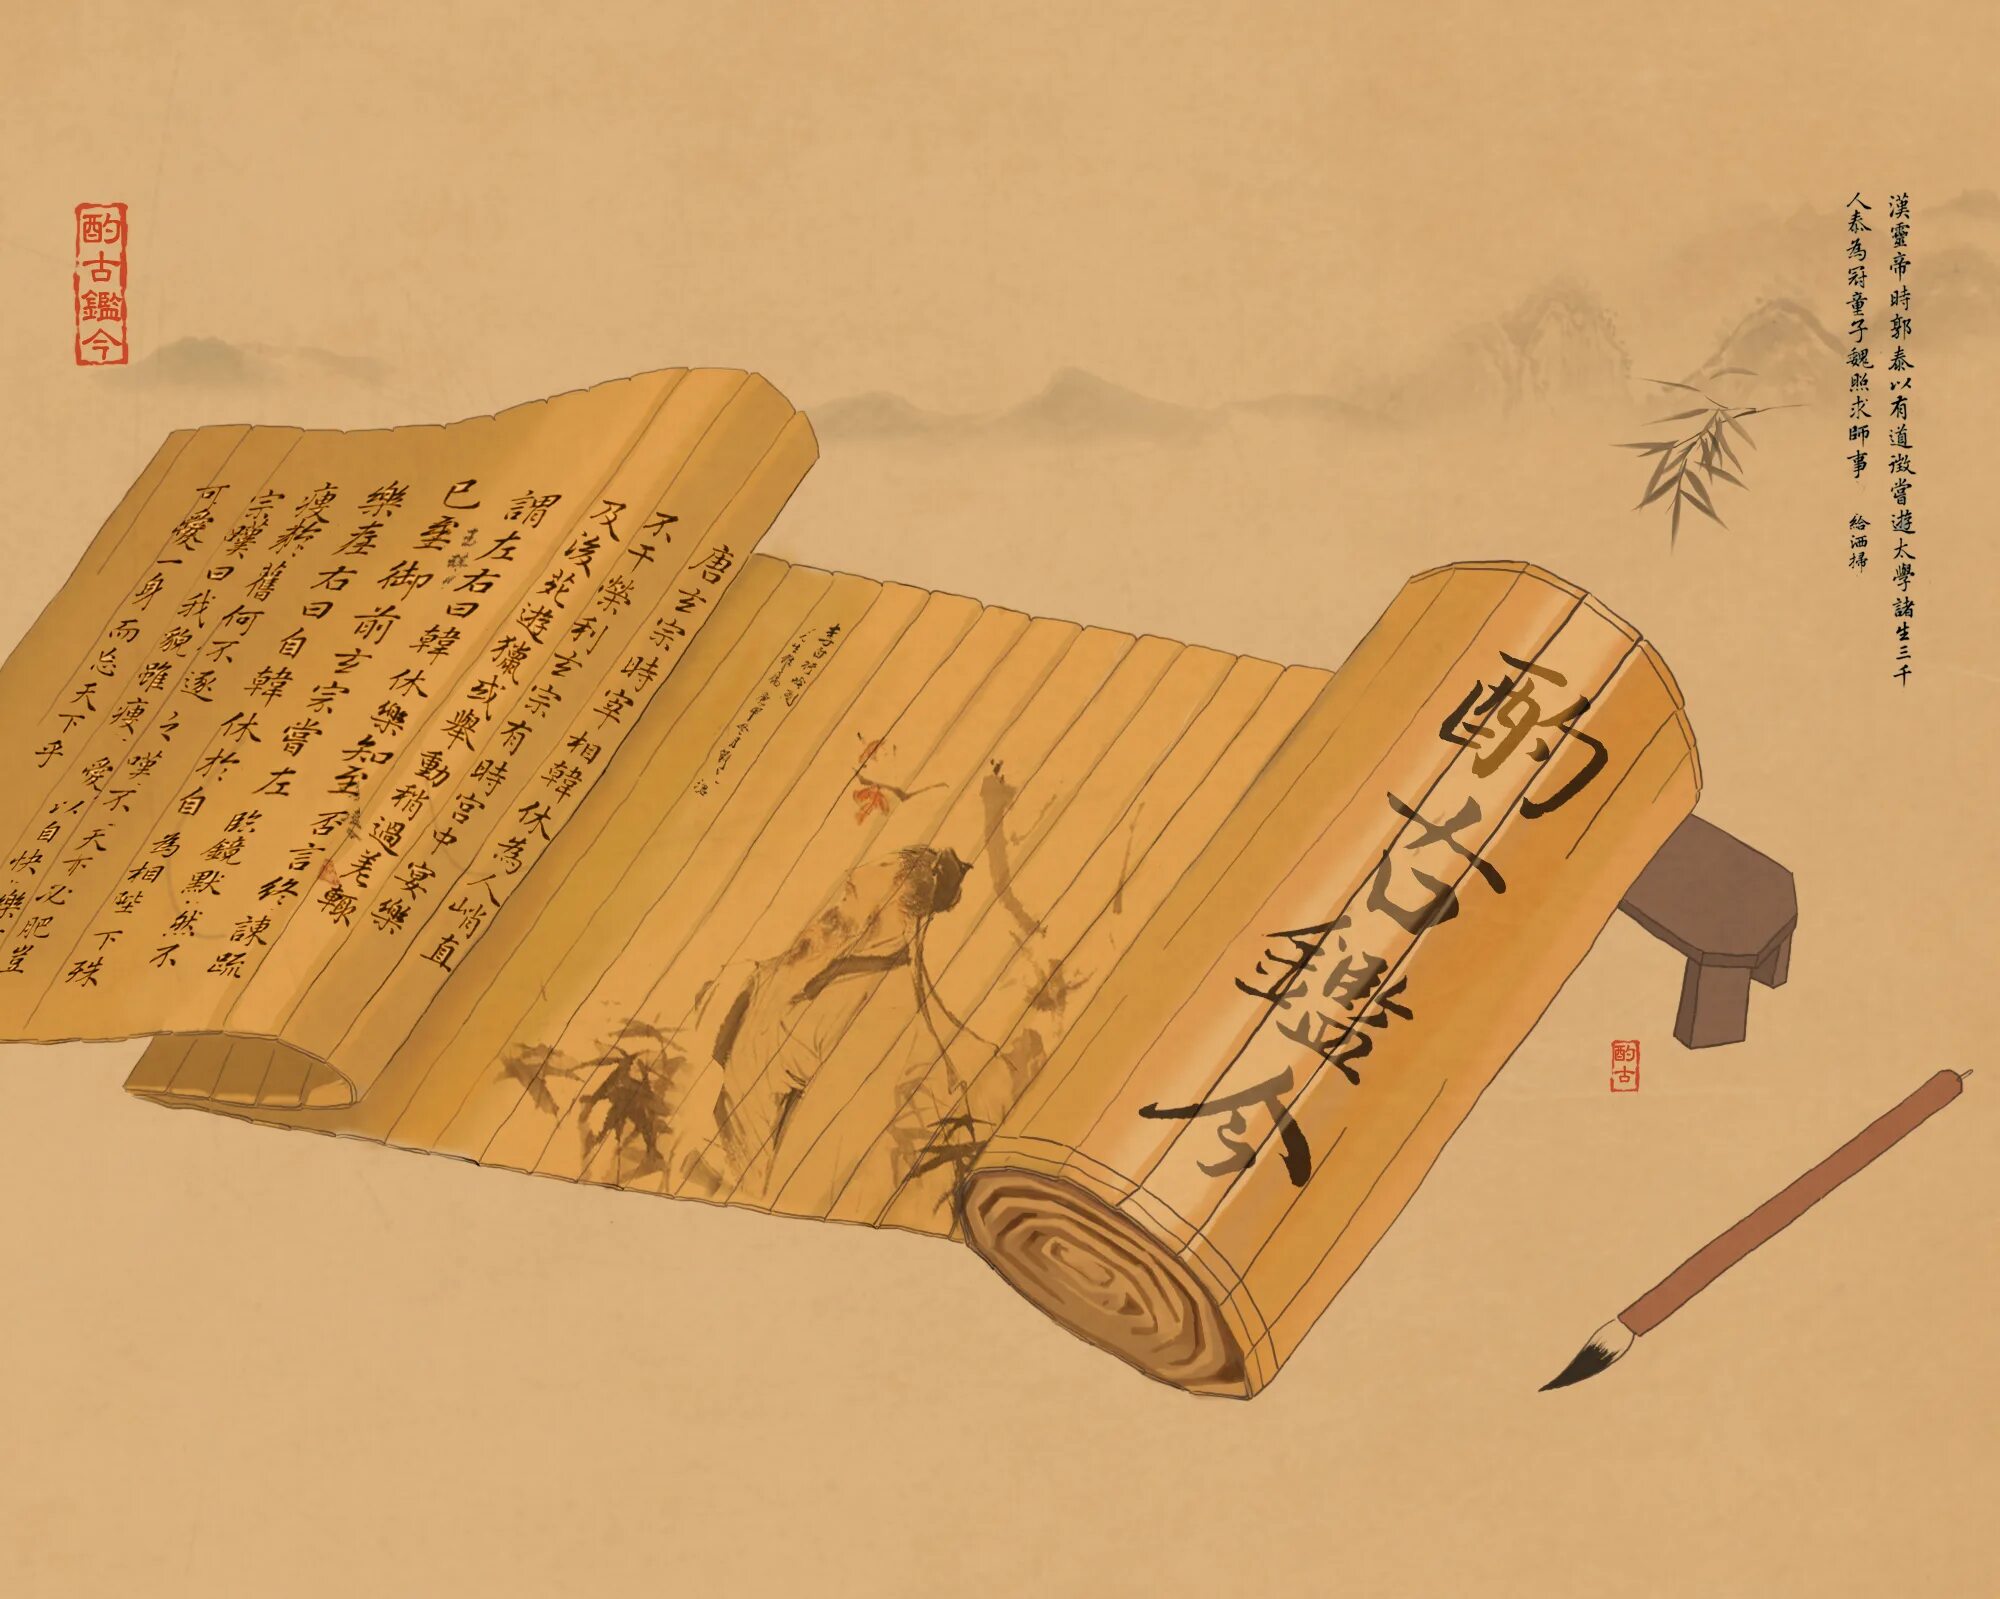 漢靈帝時郭泰以有道徵嘗遊太學諸生三千
人泰為冠童子魏照求師事 給洒掃
酌古鑑今
酌古
唐玄宗時宰相韓休為人峭直
不干榮利玄宗有時宮中宴樂
及後苑遊獵或舉動稍過差輒
謂左右曰韓休樂知至否言終諫疏
已至御前玄宗嘗左臨鏡默然不
樂左右曰自韓休於自為相陛下殊
瘦於舊何不逐之嘆不天亦必肥豈
宗嘆曰我貌雖瘦愛以自快樂
可愛一身而忘天下乎
酌古鑑今